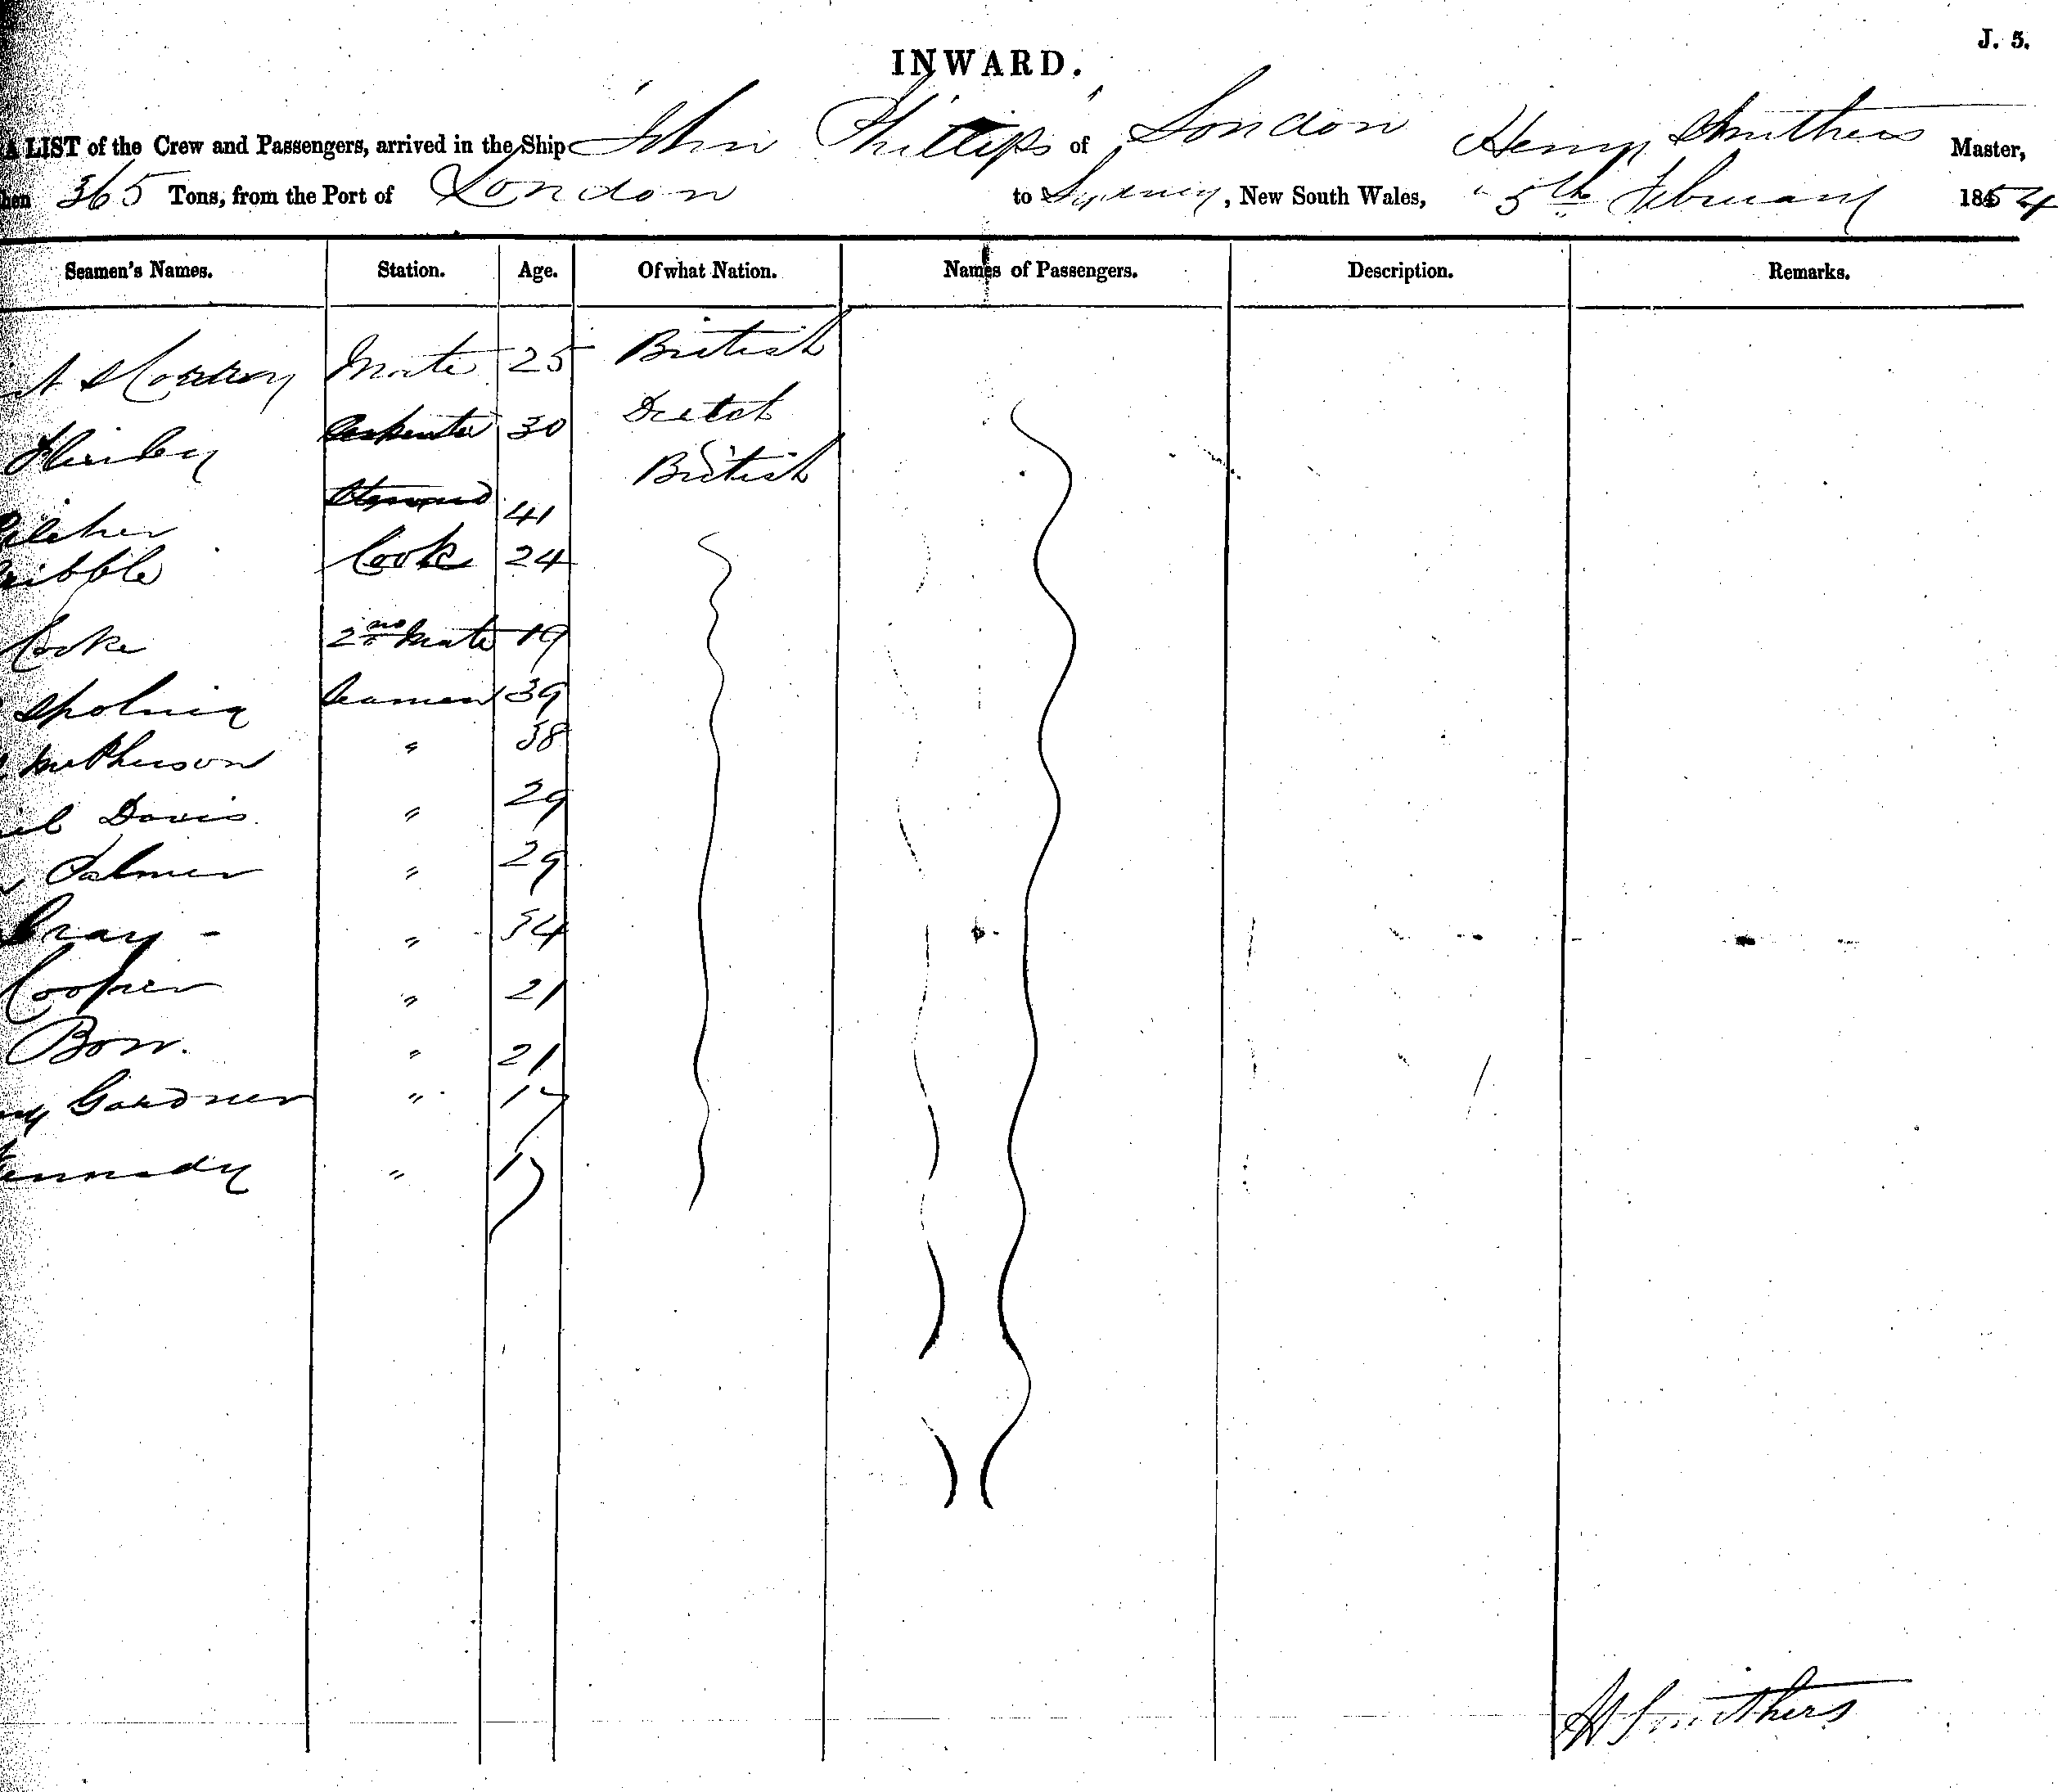 J. 5.
INWARD.
A LIST of the Crew and Passengers, arrived in the Ship "John Phillips" of London Henry Smithers Master,
365 Tons, from the Port of London to Sydney, New South Wales, 5th February 1854
Seamen's Names. Station. Age. Of what Nation. Names of Passengers. Description. Remarks.
Mate 25 British
Carpenter 30 Dutch
Steward 41 British
ribble Cook 24
Cooke 2nd Mate 19
Seaman 39
McPherson " 38
Davis " 29
Palmer " 29
Gray - " 54
Cooper " 21
Bow. " 21
Gardner " 17
ennedy " 17
H Smithers